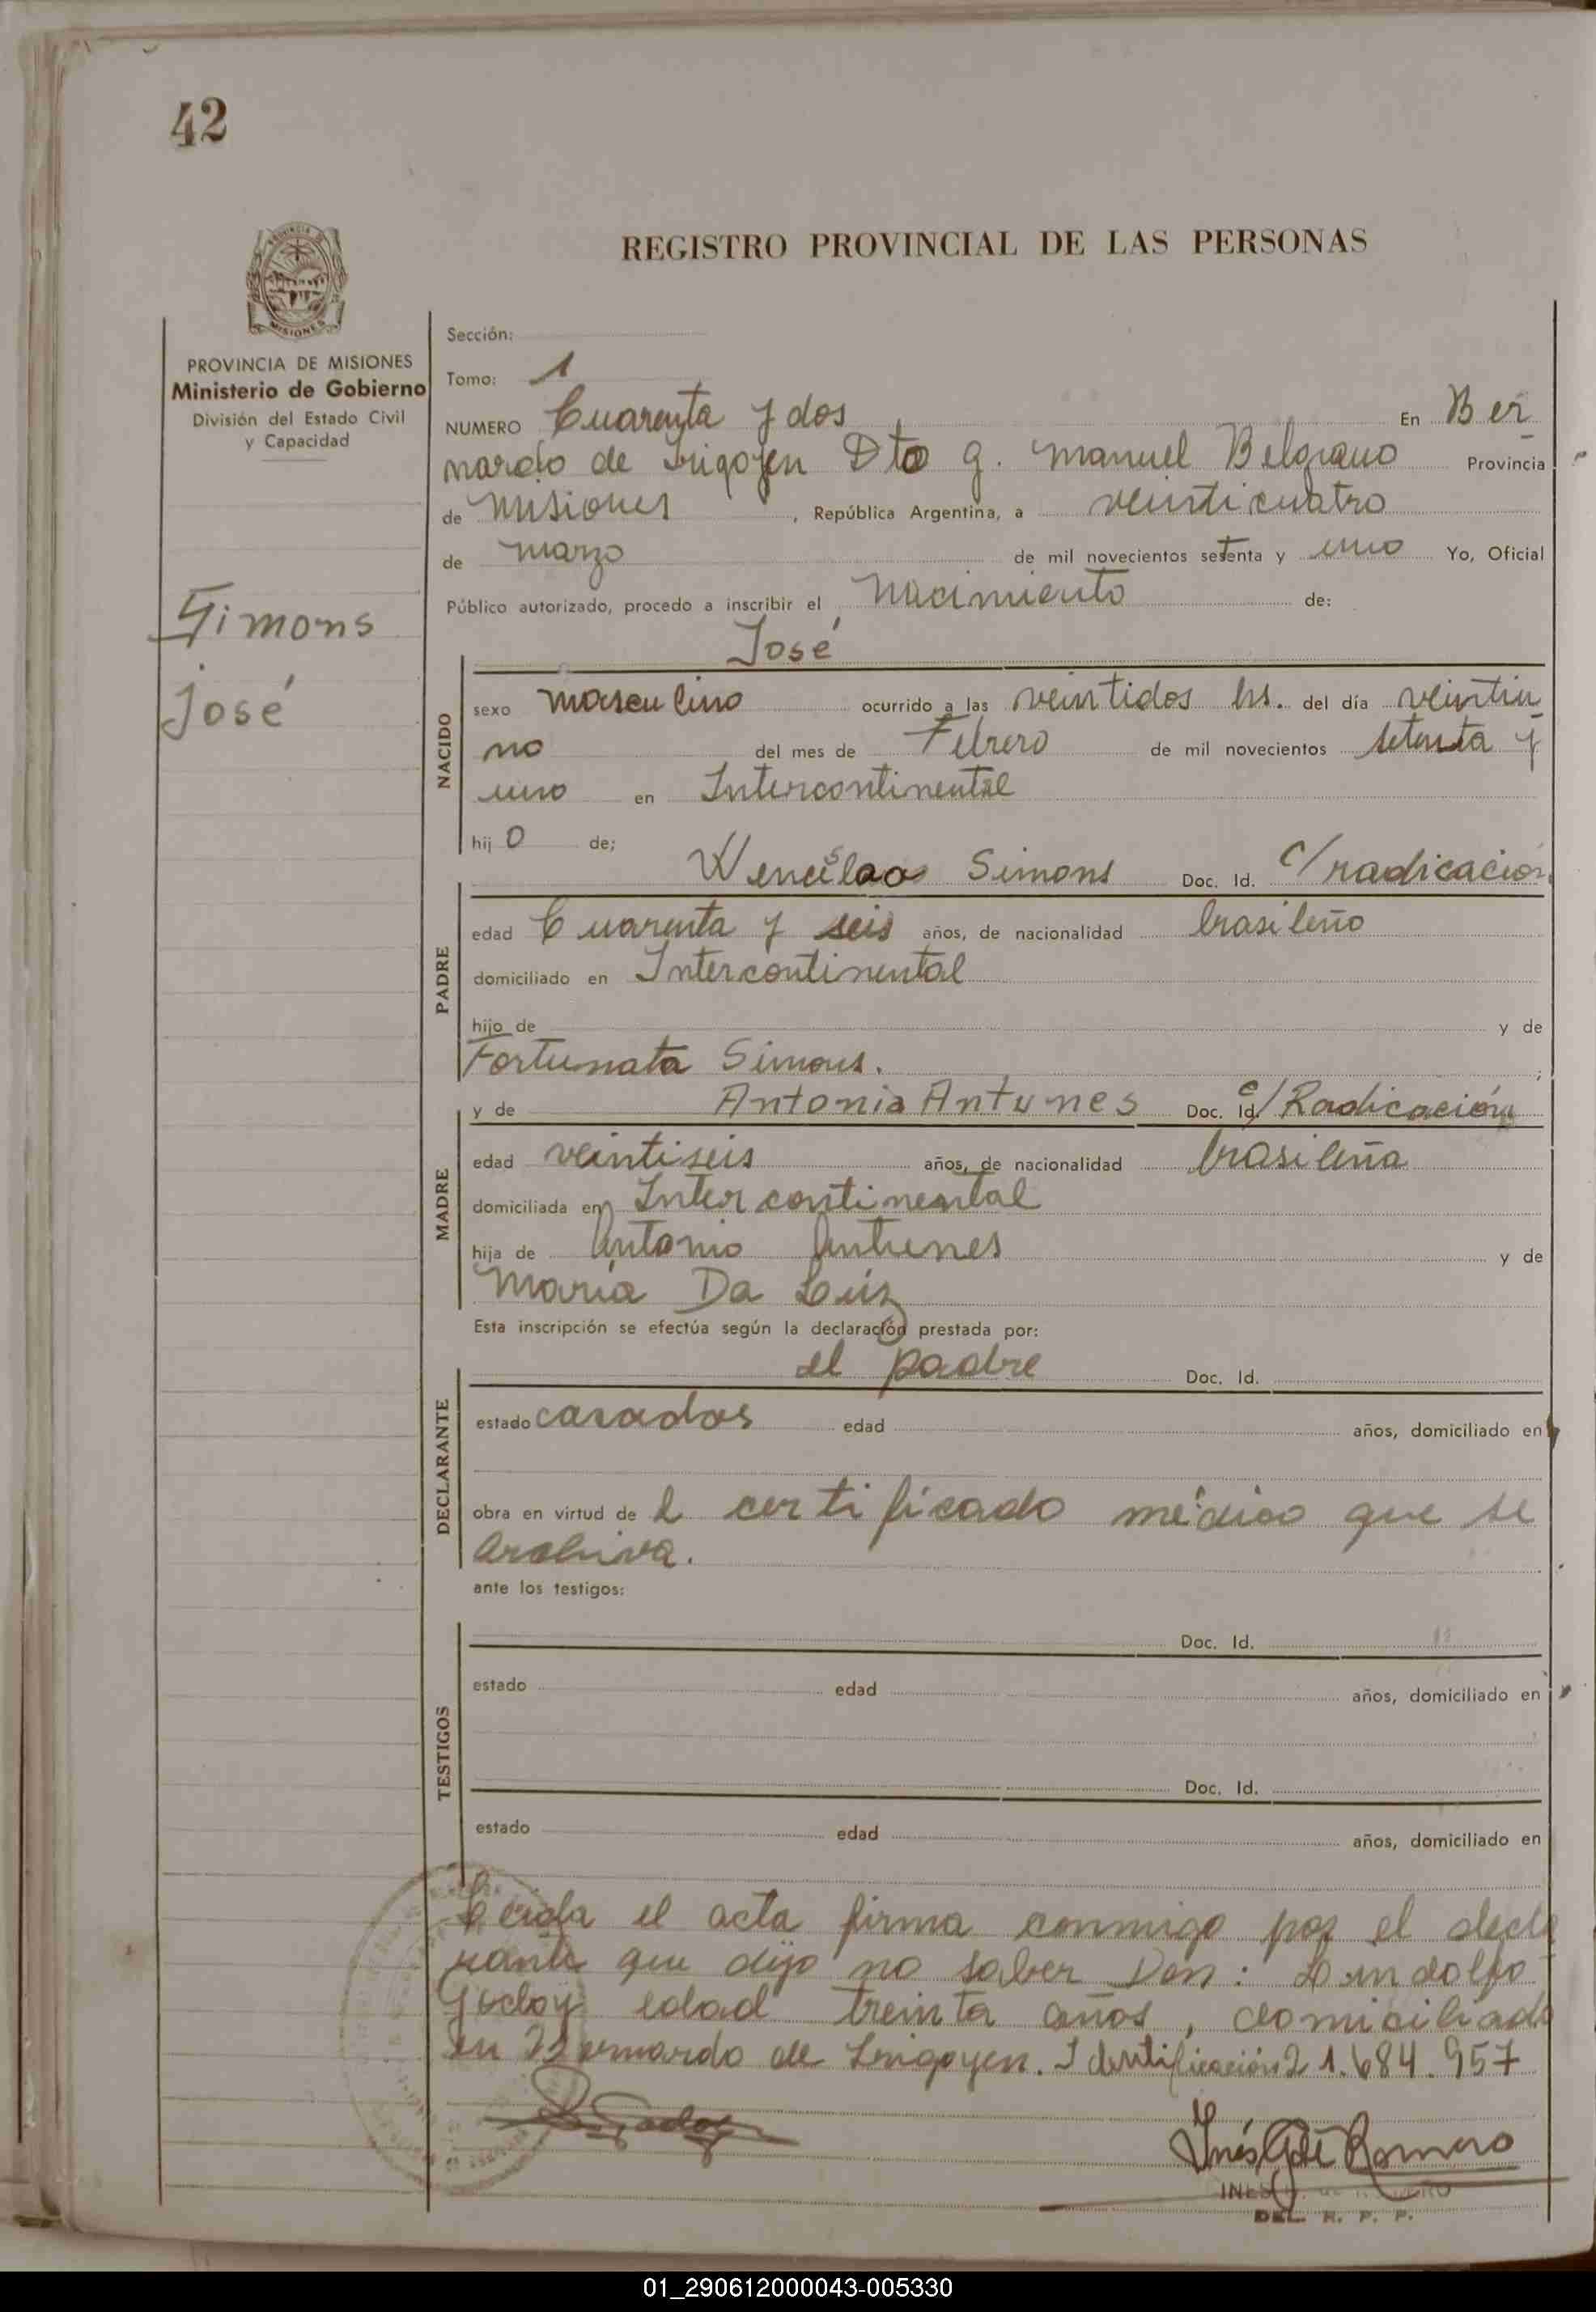 42
REGISTRO PROVINCIAL DE LAS PERSONAS
MISIONES
PROVINCIA DE MISIONES
Ministerio de Gobierno
División del Estado Civil
y Capacidad
Simons
José
Sección:
Tomo: 1
NUMERO Cuarenta y dos En Ber
nardo de Irigoyen Dto G. Manuel Belgrano Provincia
de Misiones, República Argentina, a veinticuatro
de marzo de mil novecientos setenta y uno Yo, Oficial
Público autorizado, procedo a inscribir el nacimiento de:
José
NACIDO
sexo masculino ocurrido a las veintidos hs. del día veintiu
no del mes de Febrero de mil novecientos setenta y
uno en Intercontinental
hij o de;
Wenceslao Simons Doc. Id. c/ radicación
PADRE
edad Cuarenta y seis años, de nacionalidad brasileño
domiciliado en Intercontinental
hijo de y de
Fortunata Simons. ;
y de Antonia Antunes Doc. Id. c/ Radicación
MADRE
edad veintiseis años, de nacionalidad brasileña
domiciliada en Intercontinental
hija de Antonio Antunes y de
María Da Luz
Esta inscripción se efectúa según la declaración prestada por:
el padre Doc. Id.
DECLARANTE
estado casados edad años, domiciliado en
obra en virtud de l certificado médico que se
archiva.
ante los testigos:
Doc. Id.
TESTIGOS
estado edad años, domiciliado en
Doc. Id.
estado edad años, domiciliado en
Leida el acta firma conmigo por el decla
rante que dijo no saber Don: Lindolfo
Godoy edad treinta años, domiciliado
en Bernardo de Irigoyen. Identificación 21.684.957
Inés G. de Romero
DEL. R. P. P.
01_290612000043-005330